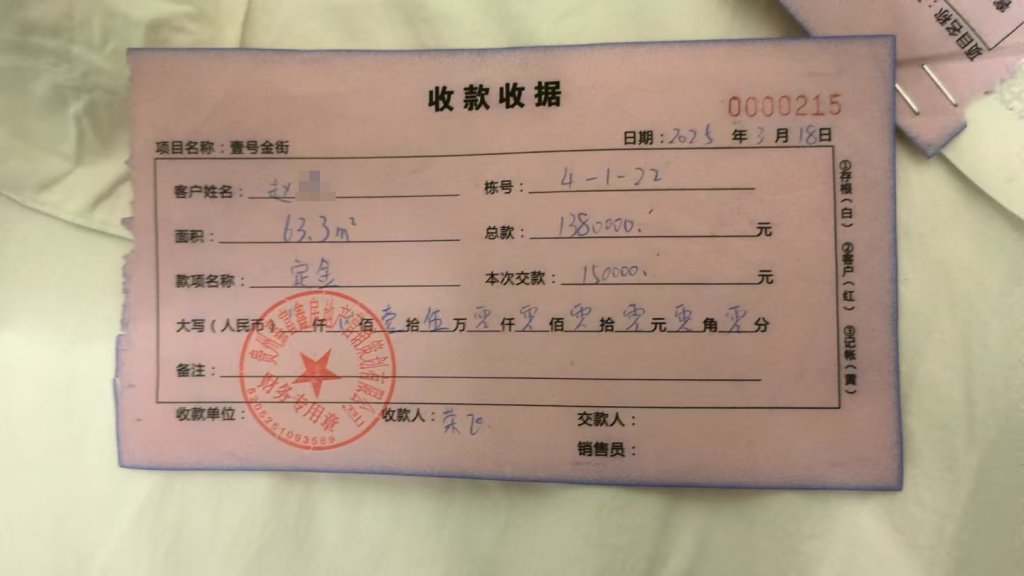 收款收据
0000215
项目名称：壹号金街
日期：2025 年 3 月 18日
客户姓名：赵
栋号：4-1-22
面积：63.3m²
总款：1380000. 元
款项名称：定金
本次交款：150000. 元
大写（人民币） 仟 佰 壹 拾 伍 万 零 仟 零 佰 零 拾 零 元 零 角 零 分
备注：
收款单位：
收款人：
交款人：
销售员：
①存根（白） ②客户（红） ③记帐（黄）
财务专用章
项目名称：